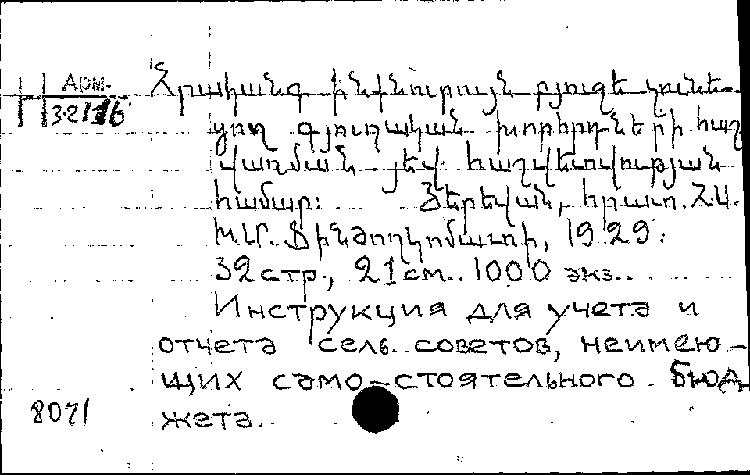 Арм.
3-2
Հրահանգ ինքնուրույն բյուջե չունե-
ցող գյուղական խորհրդների հաշ
վառման յեվ հաշվետվության
համար: Յերեվան, հրատ. Հ.Ս.
Խ.Հ. Ֆինժողկոմատի, 1929:
32 стр., 21 см. 1000 экз.
Инструкция для учета и
отчета сель. советов, неимею-
щих само-стоятельного бюд
жета.
8071